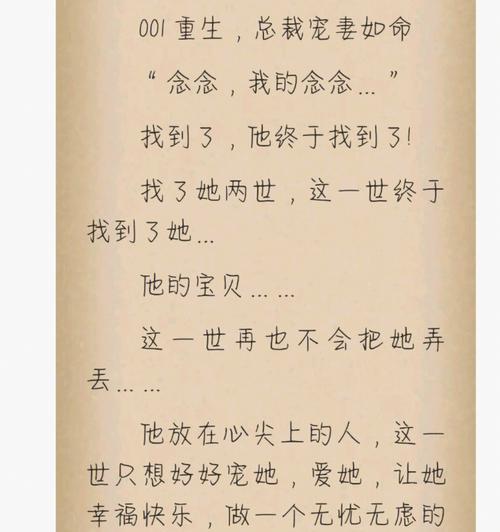 001重生，总裁宠妻如命
“念念，我的念念…”
找到了，他终于找到了！
找了她两世，这一世终于
找到了她…
他的宝贝……
这一世再也不会把她弄
丢……
他放在心尖上的人，这一
世只想好好宠她，爱她，让她
幸福快乐，做一个无忧无虑的